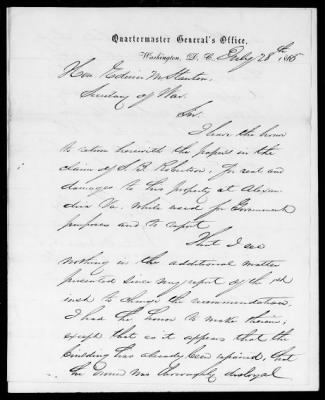 Quartermaster General's Office,
Washington, D. C. July 28th 1865
Hon Edwin M Stanton
Secretary of War.
Sir,
I have the honor
to return herewith the papers in the
claim of S. B. Robertson, for rent and
damages to his property at Alexan-
dria Va. while used for Government
purposes and to report
That I see
nothing in the additional matter
presented since my report of the
inst to change the recommendation
I had the honor to make therein;
except that as it appears that the
building has already been repaired, that
the owner was thoroughly disloyal